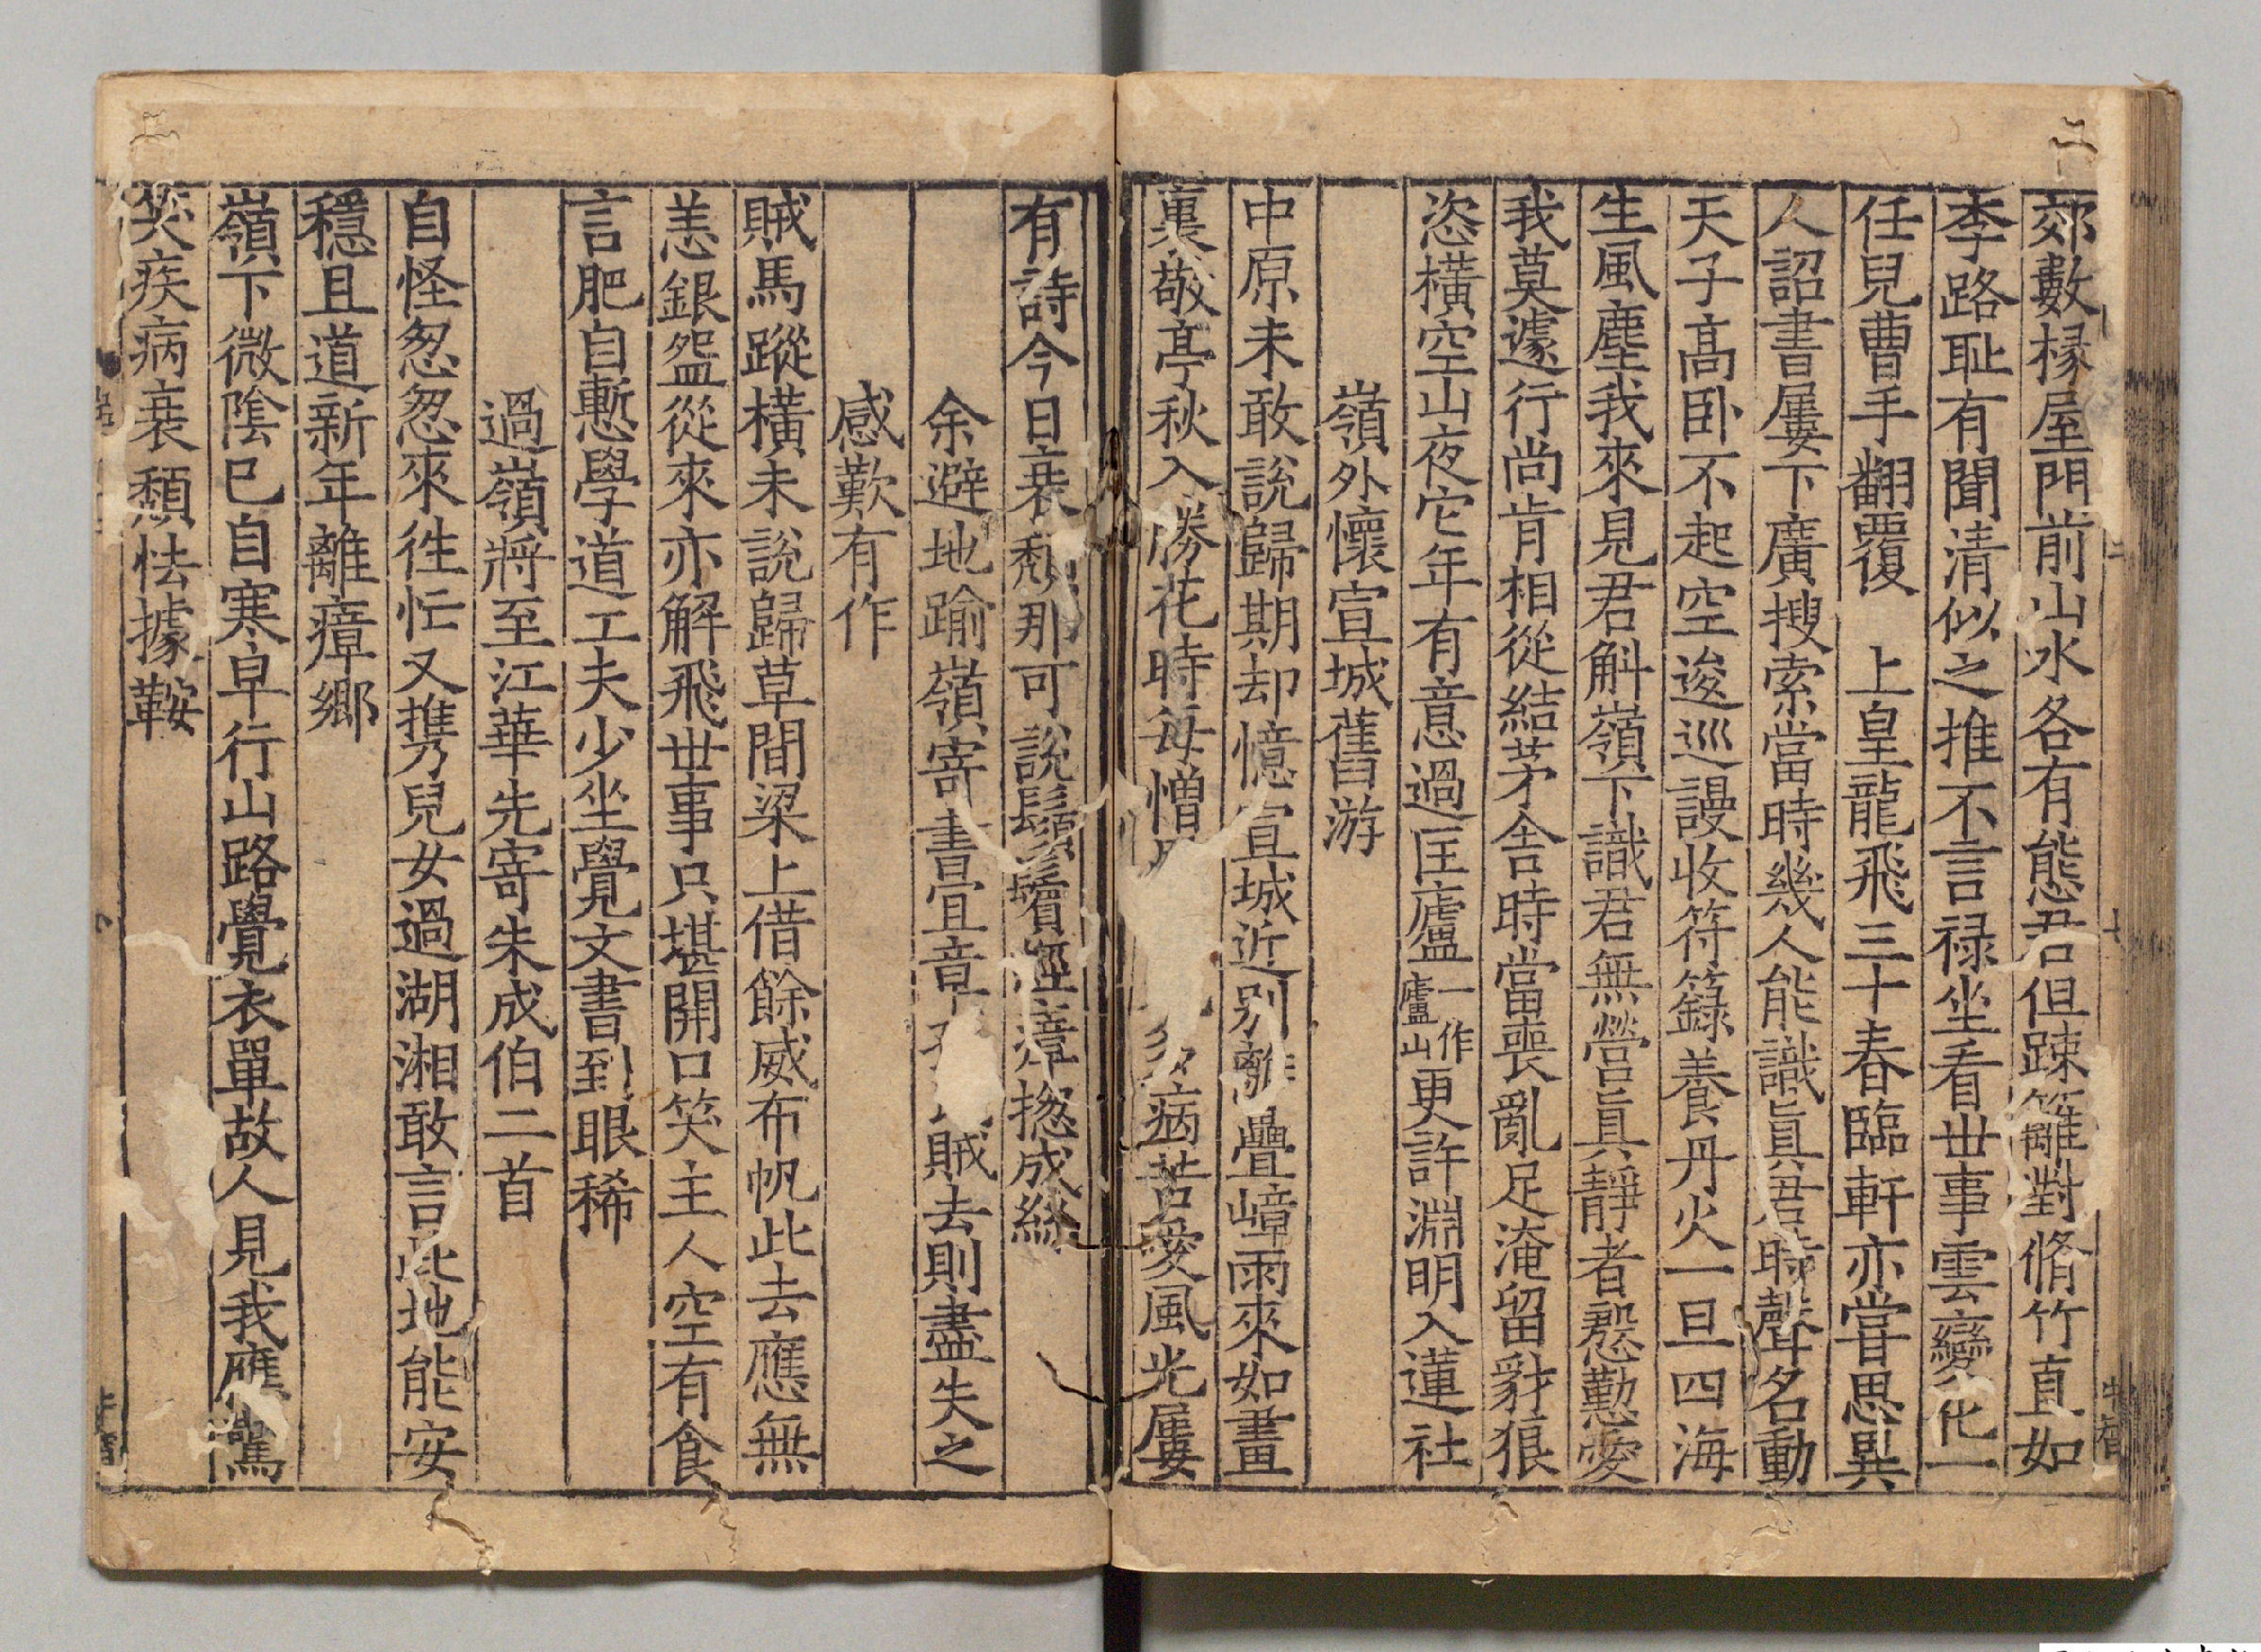 郊數椽屋門前山水各有態君但踈籬對脩竹直如
李路恥有聞清似之推不言禄坐看世事雲變化一
任兒曹手翻覆 上皇龍飛三十春臨軒亦甞思異
人詔書屢下廣搜索當時幾人能識眞君時聲名動
天子高卧不起空逡巡謾收符籙養丹火一旦四海
生風塵我來見君斛嶺下識君無營眞靜者慇懃愛
我莫遽行尚肯相從結茅舍時當喪亂足淹留豺狼
恣横空山夜它年有意過匡廬一作廬山更許淵明入蓮社
嶺外懷宣城舊游
中原未敢說歸期却憶宣城近别離疊嶂雨來如畫
裏敬亭秋入勝花時每憎多病苦愛風光屢
有詩今日衰頽那可說鬚鬢經瘴揔成絲
余避地踰嶺寄書宜章賊去則盡失之
感歎有作
賊馬蹤横未說歸草間梁上借餘威布帆此去應無
恙銀盌從來亦解飛世事只堪開口笑主人空有食
言肥自慙學道工夫少坐覺文書到眼稀
過嶺將至江華先寄朱成伯二首
自怪怱怱來徃忙又携兒女過湖湘敢言此地能安
穩且道新年離瘴鄉
嶺下微陰已自寒早行山路覺衣單故人見我應驚
笑疾病衰頽怯據鞍